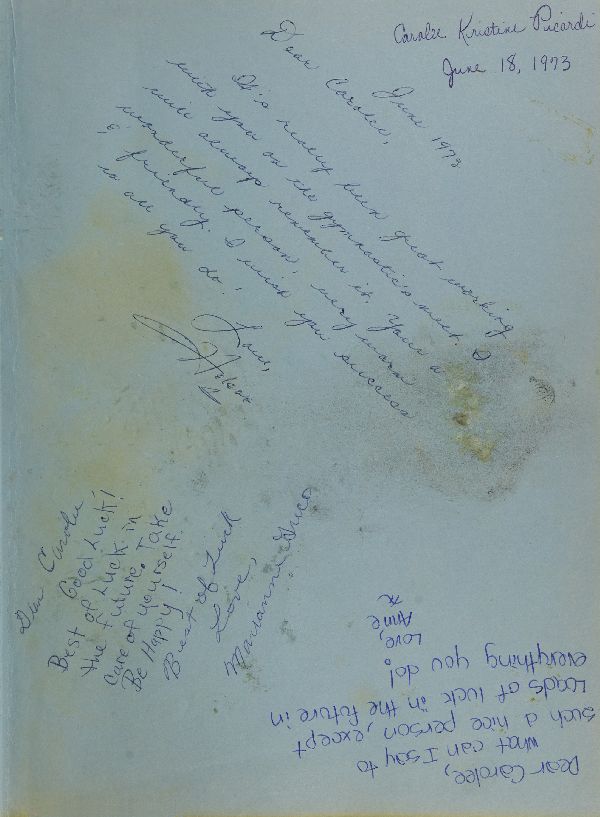 Carolee Kristine Picardi
June 18, 1973
June 1973
Dear Carolee,
It's really been great working
with you on the gymnastic's meet. I
will always remember it. Your a
wonderful person; very warm
& friendly. I wish you success
in all you do.
Love,
Dear Carolee
Good Luck!
Best of Luck in
the future. Take
care of yourself.
Be Happy!
Best of Luck
Love,
Marianne Greco
Dear Carolee,
What can I say to
such a nice person, except
Loads of luck in the future in
everything you do!
Love,
Anne